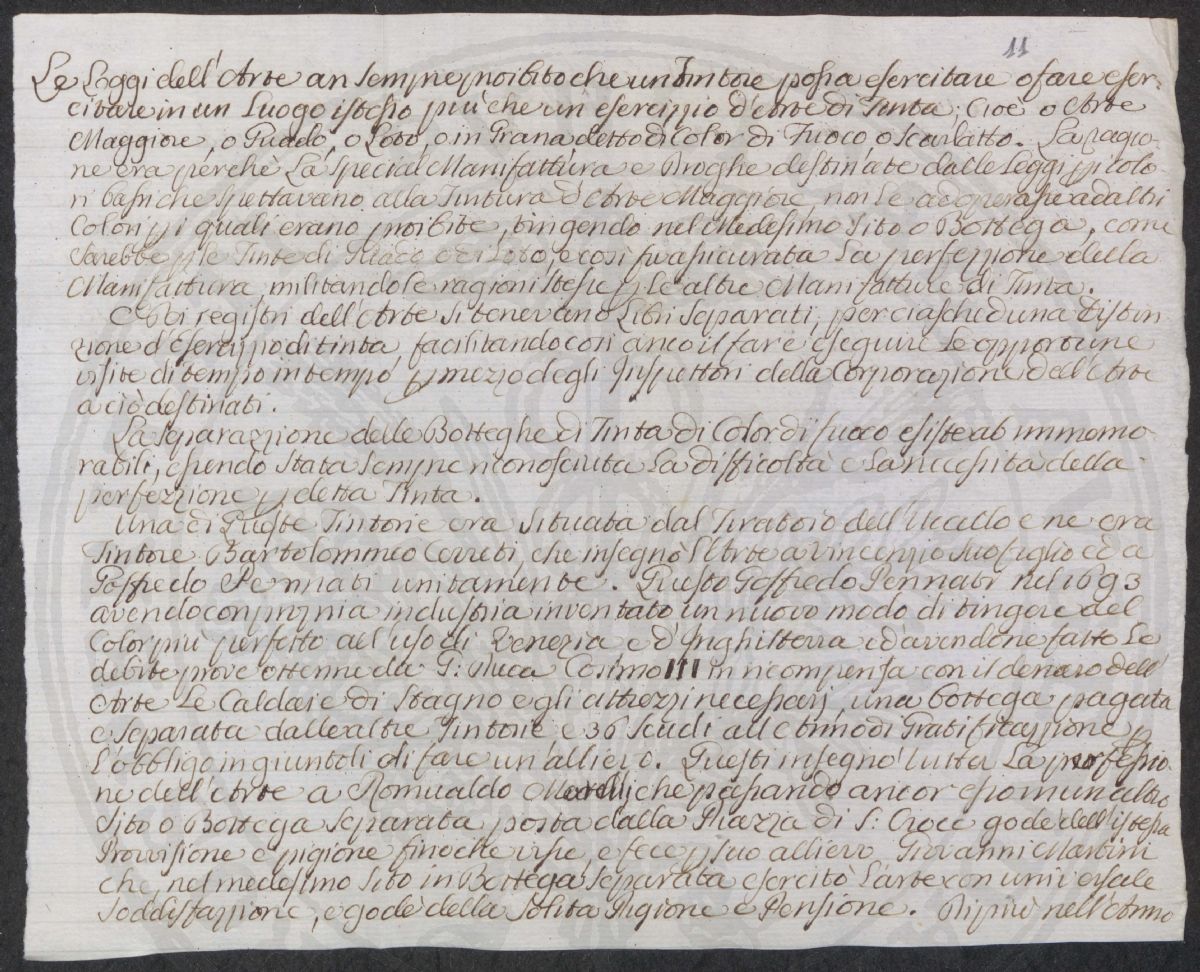 11
Le Leggi dell'Arte an sempre proibito che un Tintore possa esercitare o fare eser-
citare in un Luogo istesso più che un esercizzio d'Arte di Tinta; Cioè o Arte
Maggiore, o Guado, o Loto, o in Grana detto di Color di Fuoco o Scarlatto. La ragio-
ne era perchè La special Manifattura e Droghe destinate dalle Leggi p i Colo
ri bassi che spettavano alla Tintura d'Arte Maggiore non Le adoprasse ad altri
Colori p i quali erano proibite, tingendo nel Medesimo Sito o Bottega, come
Sarebbe p le Tinte di Guado e di Loto, e così fu assicurata La perfezzione della
Manifattura, militando le ragioni stesse p Le altre Manifatture di Tinta.
E Nei registri dell'Arte si tenevano Libri Separati, per ciascheduna Distin-
zione d'Esercizzio di tinta, facilitando così anco il fare eseguire Le opportune
visite di tempo in tempo p mezzo degli Inspettori della Corporazione dell'Arte
a ciò destinati.
La Separazzione delle Botteghe di Tinta di Color di fuoco esiste ab immemo-
rabili, essendo Stata Sempre riconosciuta La difficoltà e La necessità della
perfezzione p detta Tinta.
Una di Queste Tintorie era Situata dal Tiratoio dell'Uccello e ne era
Tintore Bartolommeo Cerreti, che insegnò l'Arte a Vincenzio Suo figlio ed a
Goffredo Pennati unitamente. Questo Goffredo Pennati nel 1693
avendo con propria industria inventato un nuovo modo di tingere del
Color più perfetto all'uso di Venezia e d'Inghilterra ed avendone fatto Le
debite prove ottenne da G: Duca Cosimo III in ricompensa con il denaro dell'
Arte Le Caldaie di Stagno e gli attrezzi necessarj, una bottega pagata
e Separata dalle altre Tintorie e 36 Scudi all'Anno di Gratificazzione p
l'obbligo ingiuntoli di fare un'allievo. Questi insegnò tutta La professio-
ne dell'Arte a Romualdo che passando ancor esso in un altro
Sito o Bottega Separata posta dalla Piazza di S: Croce godè dell'istessa
Provvisione e pigione fino che visse, e fece p suo allievo Giovanni Martini
che, nel medesimo Sito in Bottega Separata esercitò L'arte con universale
Soddisfazzione, e godè della Solita Pigione e Pensione. Di più nell'Anno